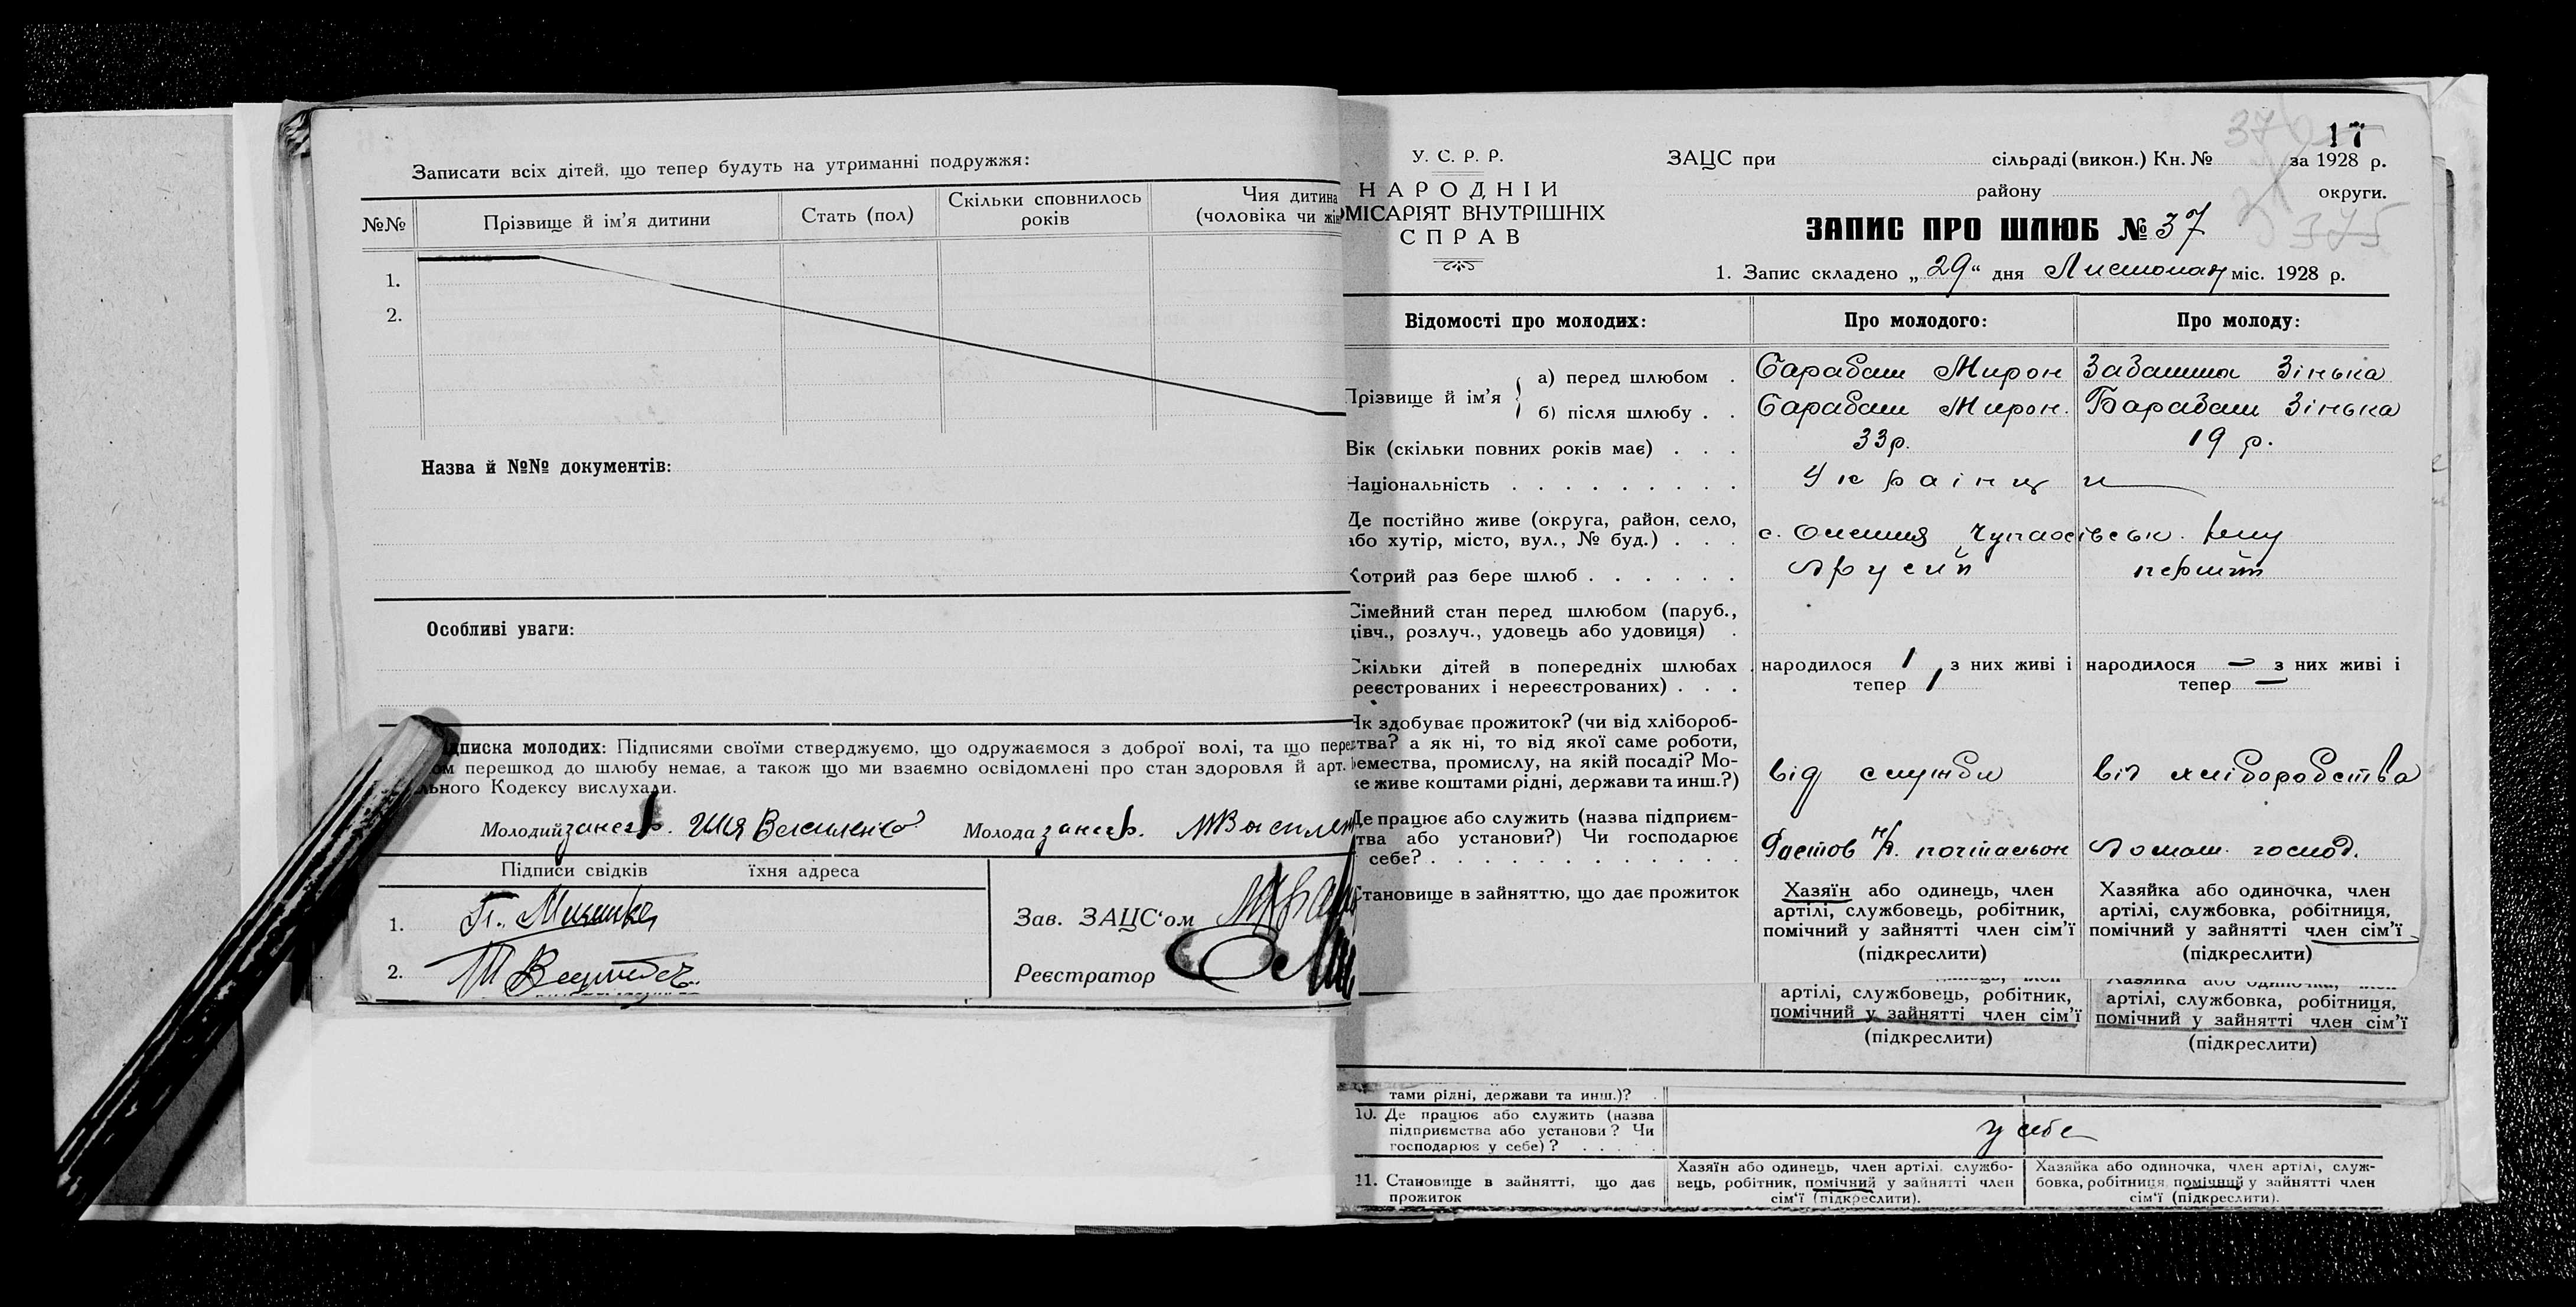 Записати всіх дітей, що тепер будуть на утриманні подружжя:
№№ Прізвище й ім'я дитини Стать (пол) Скільки сповнилось років Чия дитина (чоловіка чи
1.
2.
Назва й №№ документів:
Особливі уваги:
писка молодих: Підписями своїми стверджуємо, що одружаємося з доброї волі, та що
ом перешкод до шлюбу немає, а також що ми взаємно освідомлені про стан здоровля й арт.
льного Кодексу вислухали.
Молодий Молода
Підписи свідків їхня адреса
1.
2.
Зав. ЗАЦС'ом
Реєстратор
17
37
У. С. Р. Р.
НАРОДНІЙ
МІСАРІЯТ ВНУТРІШНІХ
СПРАВ
ЗАЦС при сільраді (викон.) Кн. № за 1928 р.
району округи.
375
ЗАПИС ПРО ШЛЮБ № 37
1. Запис складено „29“ дня Листопад міс. 1928 р.
Відомості про молодих: Про молодого: Про молоду:
Прізвище й ім'я
а) перед шлюбом . Барабаш Мирон Зінька
б) після шлюбу . . Барабаш Мирон. Барабаш Зінька
Вік (скільки повних років має) . . . 33р. 19 р.
Національність . . . . . . . . . Українци
Де постійно живе (округа, район, село,
або хутір, місто, вул., № буд.) . . . с.
Котрий раз бере шлюб . . . . . . Другий перший
Сімейний стан перед шлюбом (паруб.,
дівч., розлуч., удовець або удовиця) .
Скільки дітей в попередніх шлюбах . народилося 1 з них живі і народилося — з них живі і
реєстрованих і нереєстрованих) . . . тепер 1 тепер —
Як здобуває прожиток? (чи від хлібороб-
тва? а як ні, то від якої саме роботи,
ремества, промислу, на якій посаді? Мо-
же живе коштами рідні, держави та инш.?) від служби від хліборобства
Де працює або служить (назва підприєм-
тва або установи?) Чи господарює
себе? . . . . . . . . . . . . . Фастов п/к. почтальон Домаш. господ.
Становище в зайняттю, що дає прожиток
Хазяїн або одинець, член
артілі, службовець, робітник,
помічний у зайнятті член сім'ї
(підкреслити)
Хазяйка або одиночка, член
артілі, службовка, робітниця,
помічний у зайнятті член сім'ї
(підкреслити)
артілі, службовець, робітник,
помічний у зайнятті член сім'ї
(підкреслити)
артілі, службовка, робітниця,
помічний у зайнятті член сім'ї
(підкреслити)
тами рідні, держави та инш.)?
10. Де працює або служить (назва
підприємства або установи? Чи
господарює у себе)? . . . . . у себе
11. Становище в зайнятті, що дає
прожиток
Хазяїн або одинець, член артілі, службо-
вець, робітник, помічний у зайнятті член
сім'ї (підкреслити).
Хазяйка або одиночка, член артілі, служ-
бовка, робітниця, помічний у зайнятті член
сім'ї (підкреслити).